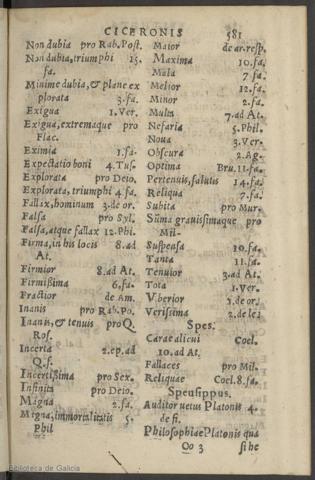 CICERONIS 581
Non dubia pro Rab. Post.
Non dubia, triumphi 15.
fa.
Minime dubia, & plane ex
plorata 3.fa.
Exigua 1.Ver.
Exigua, extremaque pro
Flac.
Eximia 1.fa.
Expectatio boni 4.Tus.
Explorata pro Deio.
Explorata, triumphi 4.fa.
Fallax, hominum 3.de or.
Falsa pro Syl.
Falsa, atque fallax 12.Phi.
Firma, in his locis 8.ad
At.
Firmior 8.ad At.
Firmißima 6.fa.
Fractior de Am.
Inanis pro Rab. Po.
Inanis, & tenuis pro Q.
Ros.
Incerta 2.ep.ad
Q.f.
Incertißima pro Sex.
Infinita pro Deio.
Magna 2.fa.
Magna, immortalitatis 5.
Phil
Maior de ar.resp.
Maxima 10.fa.
Mala 7.fa.
Melior 12.fa.
Minor 2.fa.
Multa 7.ad At.
Nefaria 5.Phil.
Noua 3.Ver.
Obscura 2.Ag.
Optima Bru.11.fa.
Pertenuis, salutis 14.fa.
Reliqua 7.fa.
Subita pro Mur.
Sũma grauissimaque pro
Mil.
Suspensa 10.fa.
Tanta 11.fa.
Tenuior 3.ad At.
Tota 1.Ver.
Vberior 1.de or.
Verissima 2.de le.
Spes.
Carae alicui Coel.
10.ad At.
Fallaces pro Mil.
Reliquae Coel.8.fa.
Speusippus.
Auditor uetus Platonis 4.
de fi.
Philosophiae Platonis qua
Oo 3 si he
Biblioteca de Galicia